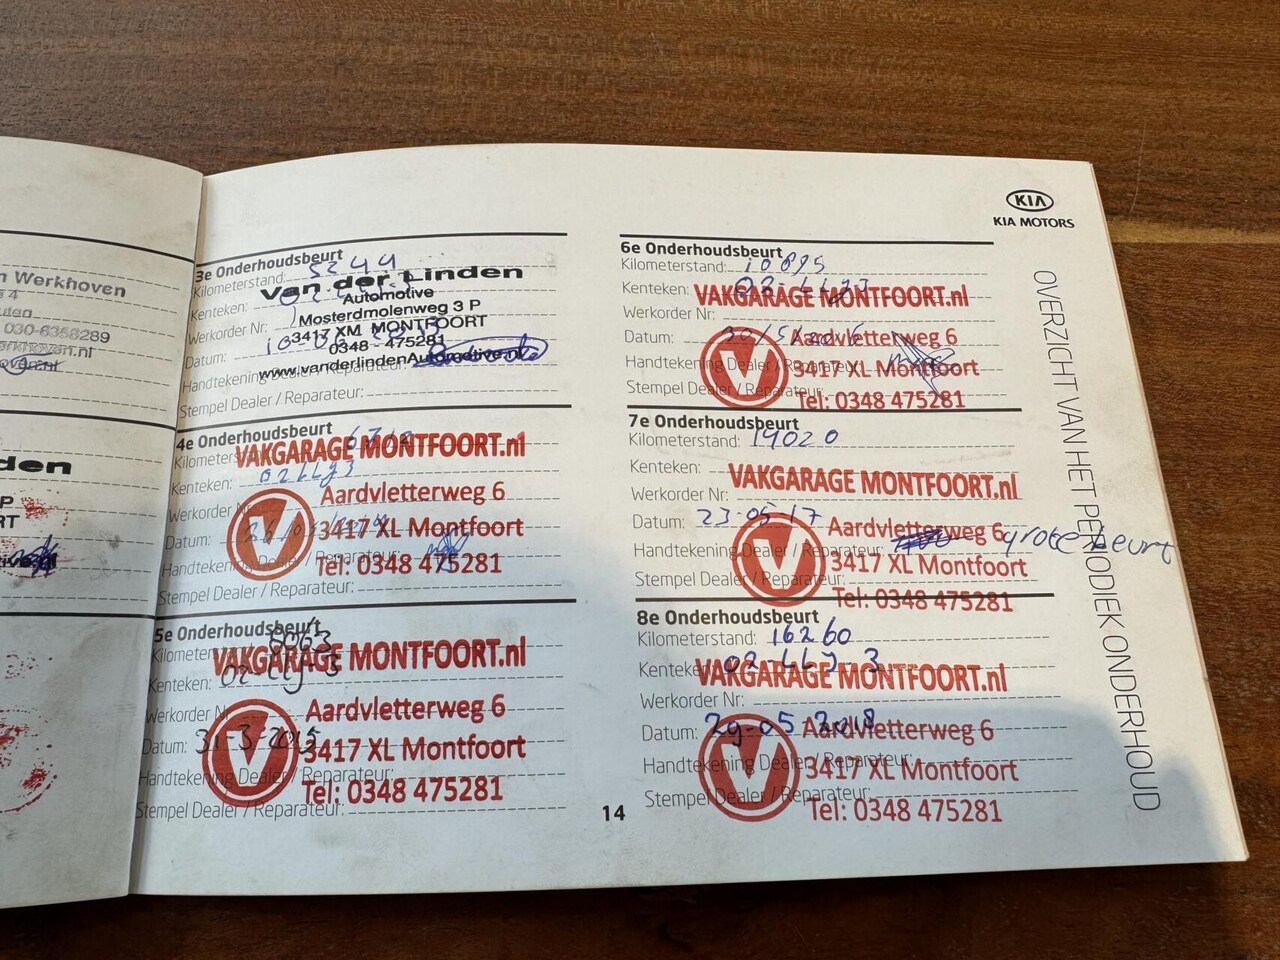 n Werkhoven
030-6358289
den
KIA
KIA MOTORS
OVERZICHT VAN HET PERIODIEK ONDERHOUD
3e Onderhoudsbeurt
Kilometerstand: 5244
Van der Linden
Kenteken:
Automotive
Mosterdmolenweg 3 P
Werkorder Nr:
3417 XM MONTFOORT
Datum:
0348 - 475281
www.vanderlindenAutomotive.nl
Handtekening Dealer / Reparateur:
Stempel Dealer / Reparateur:
4e Onderhoudsbeurt
VAKGARAGE MONTFOORT.nl
Kenteken: 02LLJ3
Aardvletterweg 6
Werkorder
Datum:
3417 XL Montfoort
Handtekening Dealer / Reparateur:
Tel: 0348 475281
Stempel Dealer / Reparateur:
5e Onderhoudsbeurt
8063
VAKGARAGE MONTFOORT.nl
Kenteken: 02-LLJ-3
Werkorder Nr
Aardvletterweg 6
Datum: 31-3-2015
3417 XL Montfoort
Handtekening Dealer / Reparateur:
Tel: 0348 475281
Stempel Dealer / Reparateur:
6e Onderhoudsbeurt
Kilometerstand: 10895
Kenteken: 02-LLJ3
VAKGARAGE MONTFOORT.nl
Werkorder Nr:
Datum: 30/5/2016
Aardvletterweg 6
Handtekening Dealer / Reparateur:
3417 XL Montfoort
Stempel Dealer / Reparateur:
Tel: 0348 475281
7e Onderhoudsbeurt
Kilometerstand: 14020
Kenteken:
VAKGARAGE MONTFOORT.nl
Werkorder Nr:
Datum: 23-05-17
Aardvletterweg 6
grote beurt
Handtekening Dealer / Reparateur:
3417 XL Montfoort
Stempel Dealer / Reparateur:
Tel: 0348 475281
8e Onderhoudsbeurt
Kilometerstand: 16260
Kenteken: 02-LLJ-3
VAKGARAGE MONTFOORT.nl
Werkorder Nr:
Datum: 29-05 2018
Aardvletterweg 6
Handtekening Dealer / Reparateur:
3417 XL Montfoort
Stempel Dealer / Reparateur:
Tel: 0348 475281
14